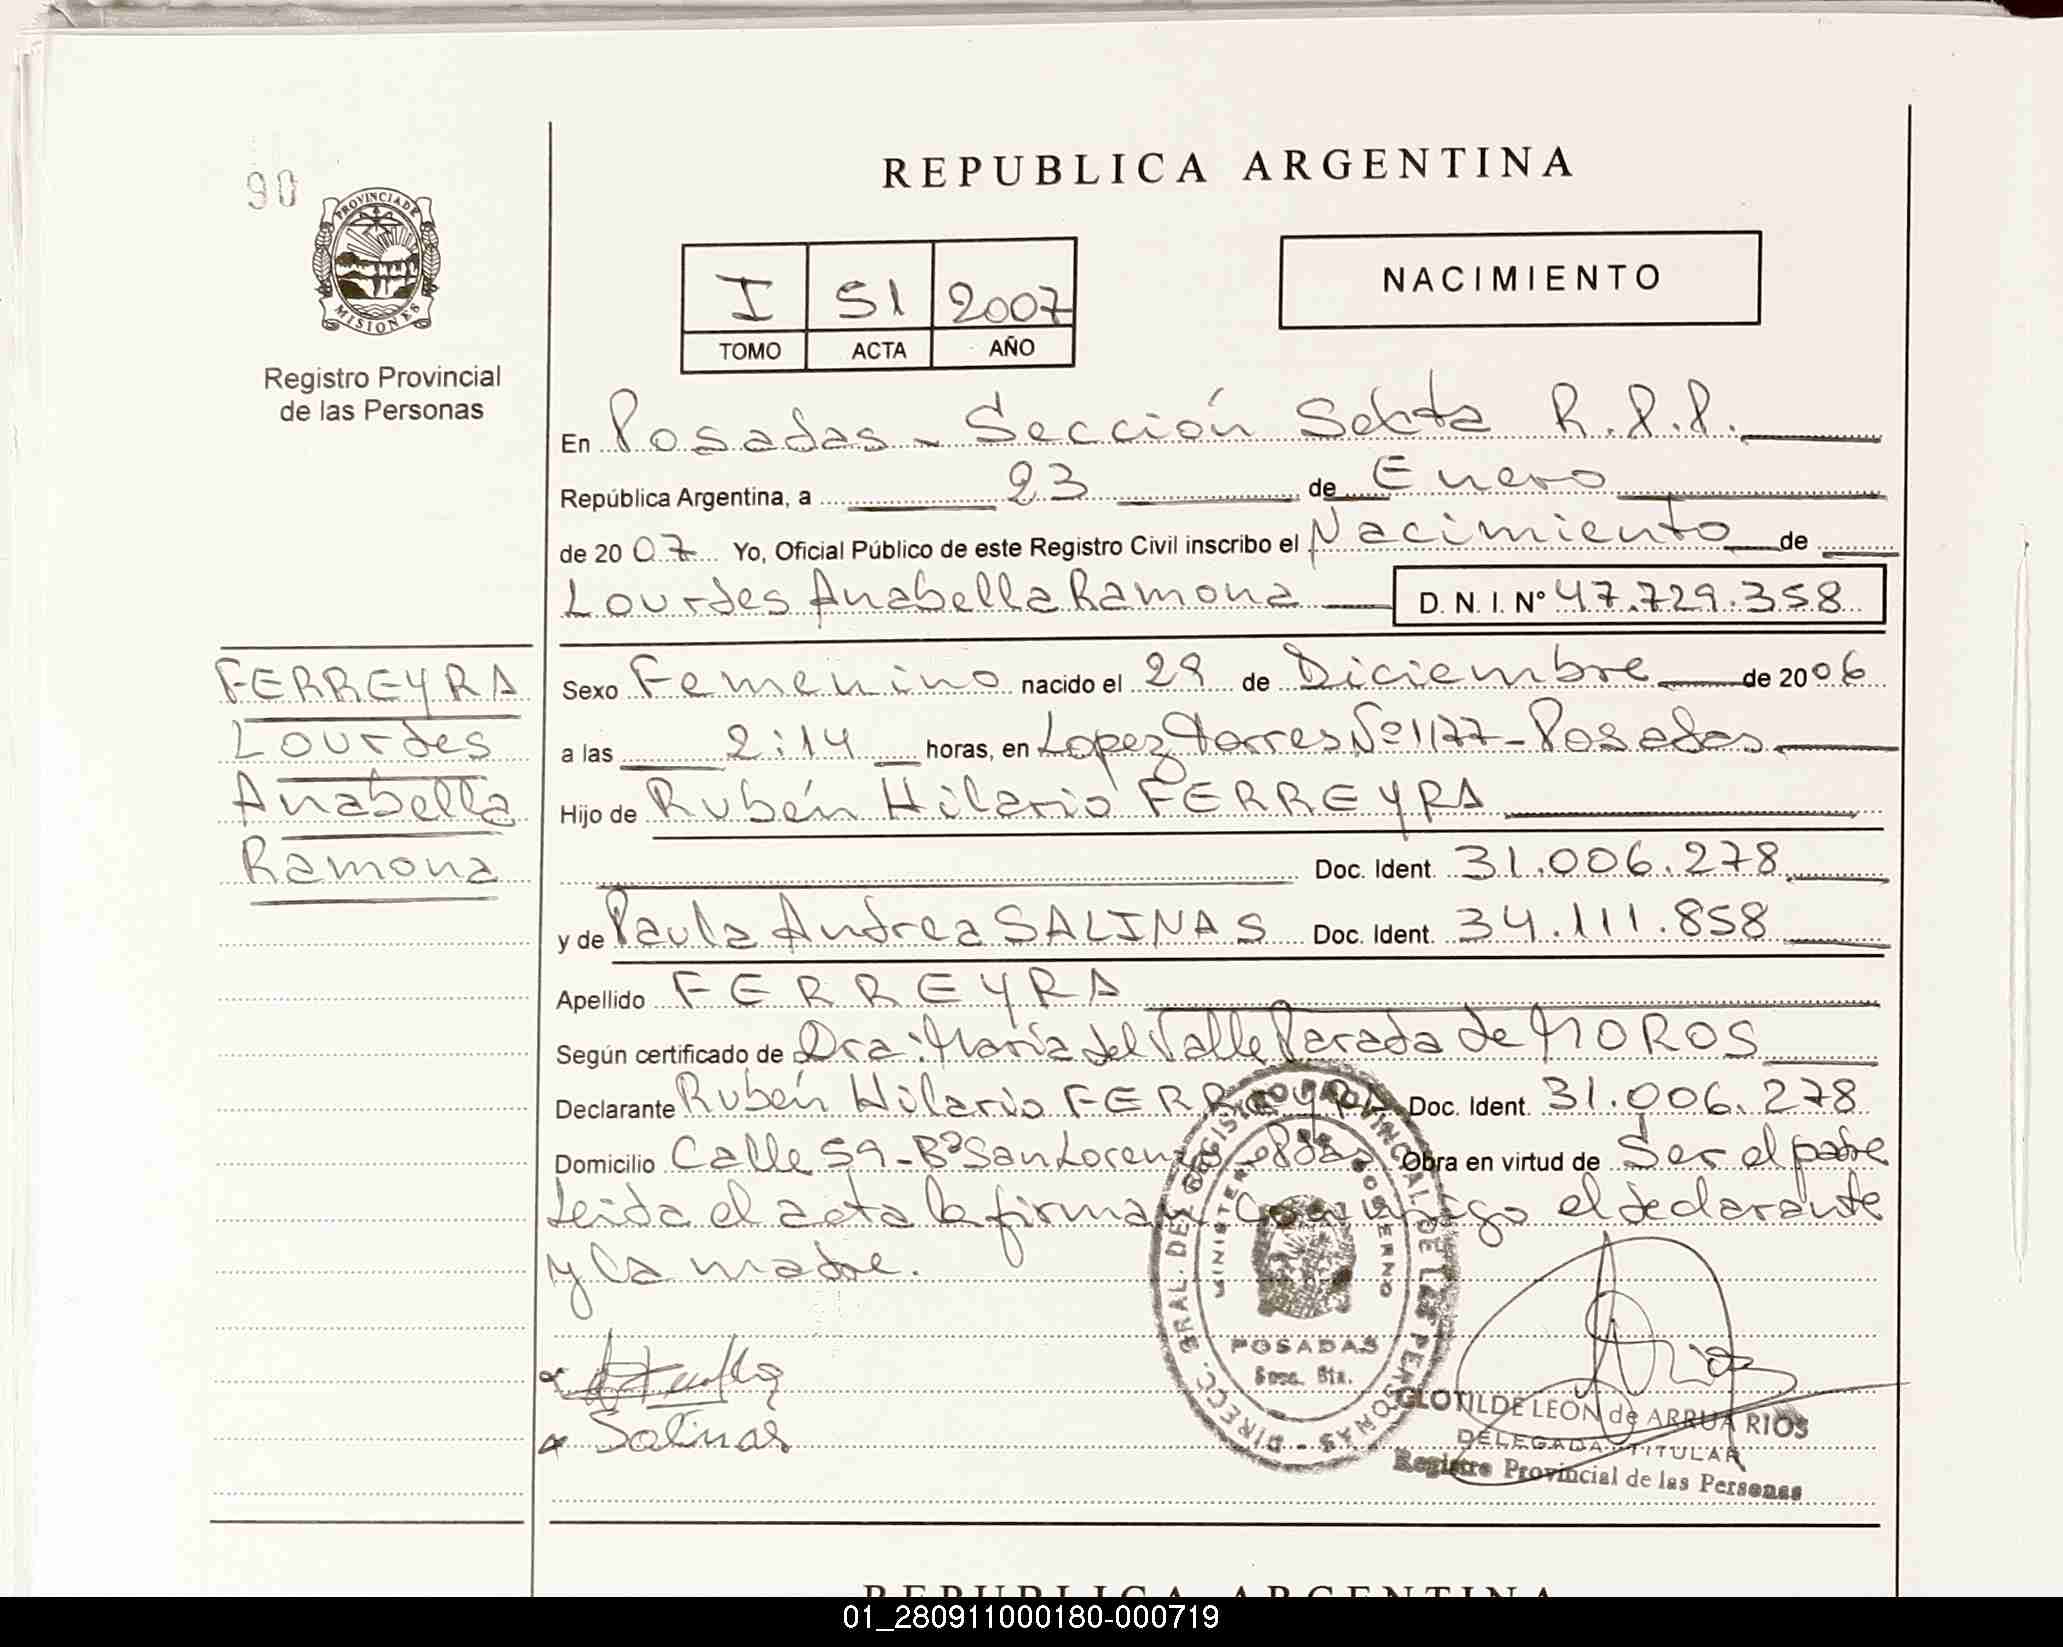 REPUBLICA ARGENTINA
90
PROVINCIA DE
MISIONES
Registro Provincial
de las Personas
I 51 2007
TOMO ACTA AÑO
NACIMIENTO
En Posadas - Sección Sexta R.P.P.
República Argentina, a 23 de Enero
de 2007 Yo, Oficial Público de este Registro Civil inscribo el Nacimiento de
Lourdes Anabella Ramona D. N. I. Nº 47.729.358
FERREYRA
Lourdes
Anabella
Ramona
Sexo Femenino nacido el 29 de Diciembre de 2006
a las 2:14 horas, en Lopez Torres Nº 1177 - Posadas
Hijo de Rubén Hilario FERREYRA
Doc. Ident. 31.006.278
y de Paula Andrea SALINAS Doc. Ident. 34.111.858
Apellido FERREYRA
Según certificado de Dra. María del Valle Parada de MOROS
Declarante Rubén Hilario FERREYRA Doc. Ident. 31.006.278
Domicilio Calle 59 - Bº San Lorenzo Obra en virtud de Ser el padre
Leida el acta la firman conmigo el declarante
y la madre.
Salinas
DIRECC. GRAL. DEL REGISTRO PROVINCIAL DE LAS PERSONAS
MINISTERIO GOBIERNO
POSADAS
Secc. 6ta.
CLOTILDE LEON de ARRUA RIOS
DELEGADA TITULAR
Registro Provincial de las Personas
REPUBLICA ARGENTINA
01_280911000180-000719